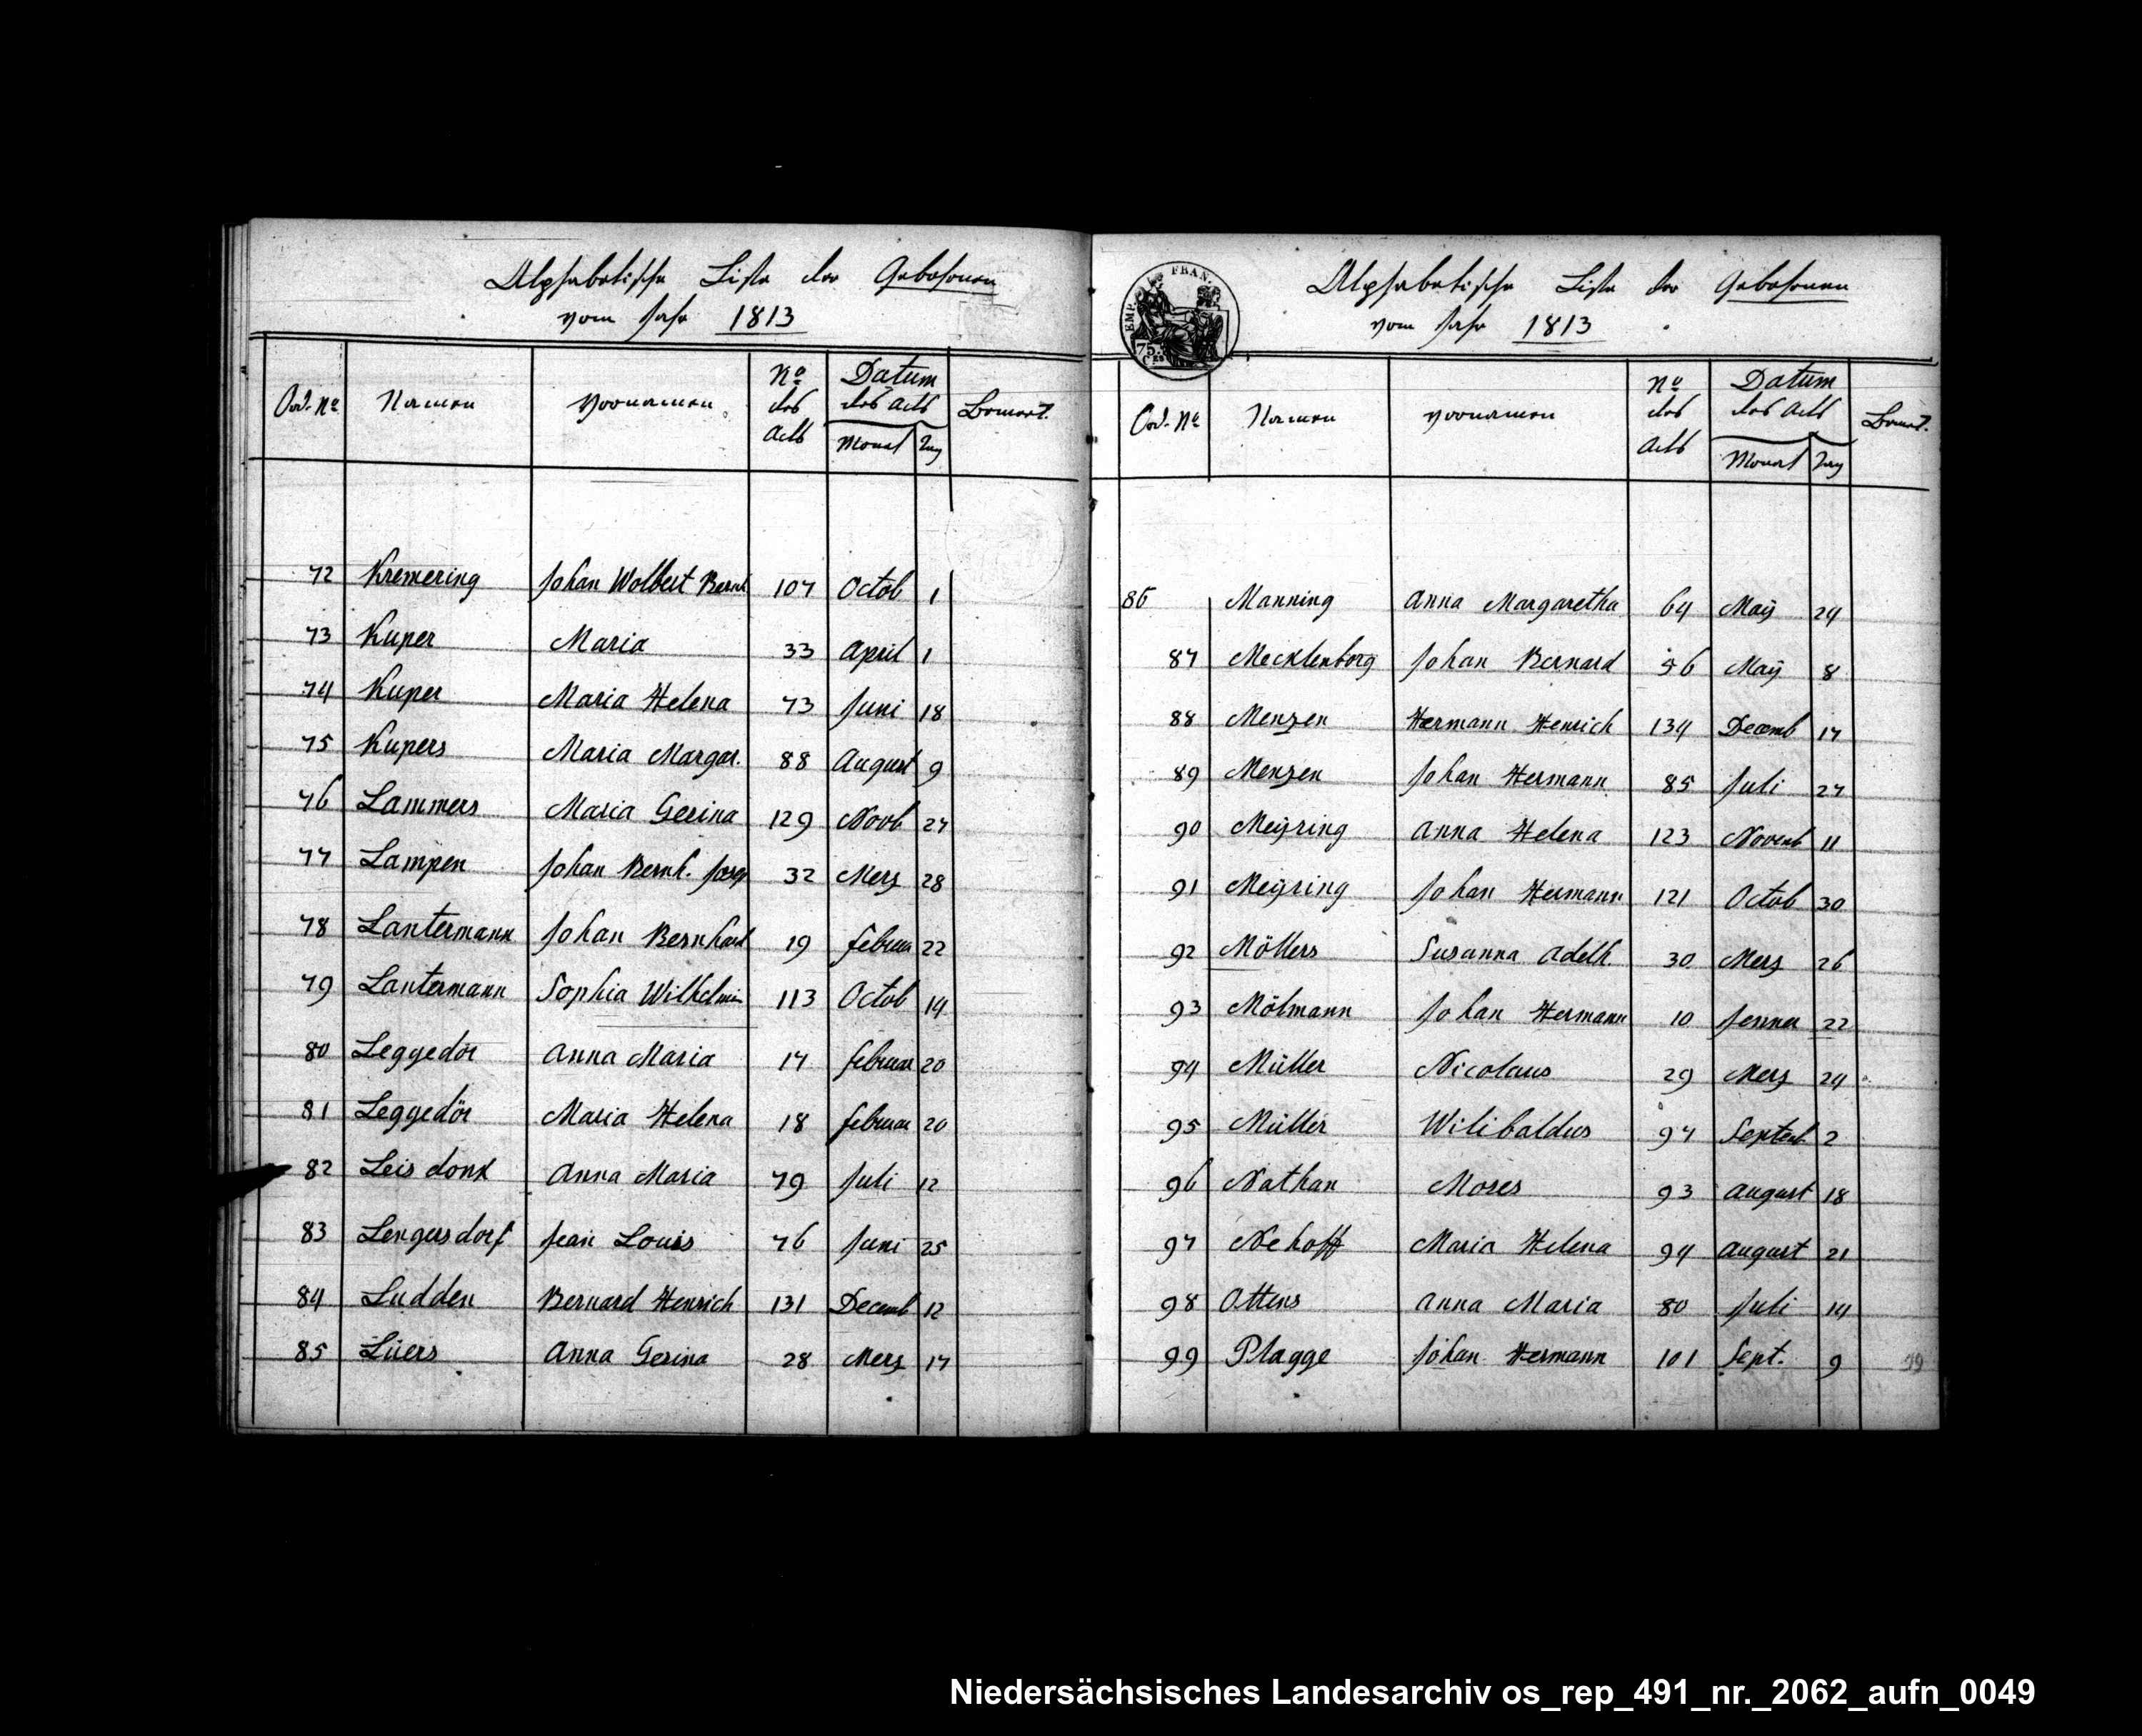 Alphabetische Liste der Gebohrnen
vom Jahr 1813
Ord. No Namen Vornamen No des Acts Datum des Acts Monat Tag Bemerk.
72 Kremering Johan Wolbert Bernh 107 Octob 1
73 Kuper Maria 33 April 1
74 Kuper Maria Helena 73 Juni 18
75 Kupers Maria Margar. 88 August 9
76 Lammers Maria Gerina 129 Novb 27
77 Lampen Johan Bernh. Josep 32 Merz 28
78 Lantermann Johan Bernhard 19 Februar 22
79 Lantermann Sophia Wilhelmin 113 Octob 14
80 Leggedör Anna Maria 17 Februar 20
81 Leggedör Maria Helena 18 Februar 20
82 Leisdonk Anna Maria 79 Juli 12
83 Lengersdorf Jean Louis 76 Juni 25
84 Ludden Bernard Henrich 131 Decemb 12
85 Lüers Anna Gesina 28 Merz 17
EMP. FRAN.
75.
CES
Alphabetische Liste der Gebohrnen
vom Jahr 1813
Ord. No Namen Vornamen No des Acts Datum des Acts Monat Tag Bemerk.
86 Manning Anna Margaretha 64 Maÿ 24
87 Mecklenborg Johan Bernard 56 Maÿ 8
88 Menzen Hermann Henrich 134 Decemb 17
89 Menzen Johan Hermann 85 Juli 27
90 Meÿring Anna Helena 123 Novemb 11
91 Meÿring Johan Hermann 121 Octob 30
92 Möllers Susanna Adelh. 30 Merz 26
93 Mölmann Johan Hermann 10 Jenner 22
94 Müller Nicolaus 29 Merz 24
95 Müller Wilibaldus 97 Septeb. 2
96 Nathan Moses 93 August 18
97 Nehoff Maria Helena 94 August 21
98 Ottens Anna Maria 80 Juli 14
99 Plagge Johan Hermann 101 Sept. 9
Niedersächsisches Landesarchiv os_rep_491_nr._2062_aufn_0049